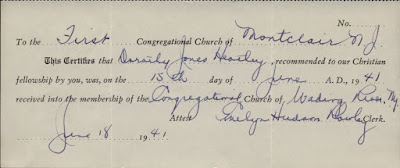 No.
To the First Congregational Church of Montclair N.J.
This Certifies that Dorothy Jones Heatley, recommended to our Christian
fellowship by you, was, on the 15th day of June A. D., 1941
received into the membership of the Congregational Church of Wading River, Ny
Attest Evelyn Hudson Rowley Clerk.
June 18 1941.